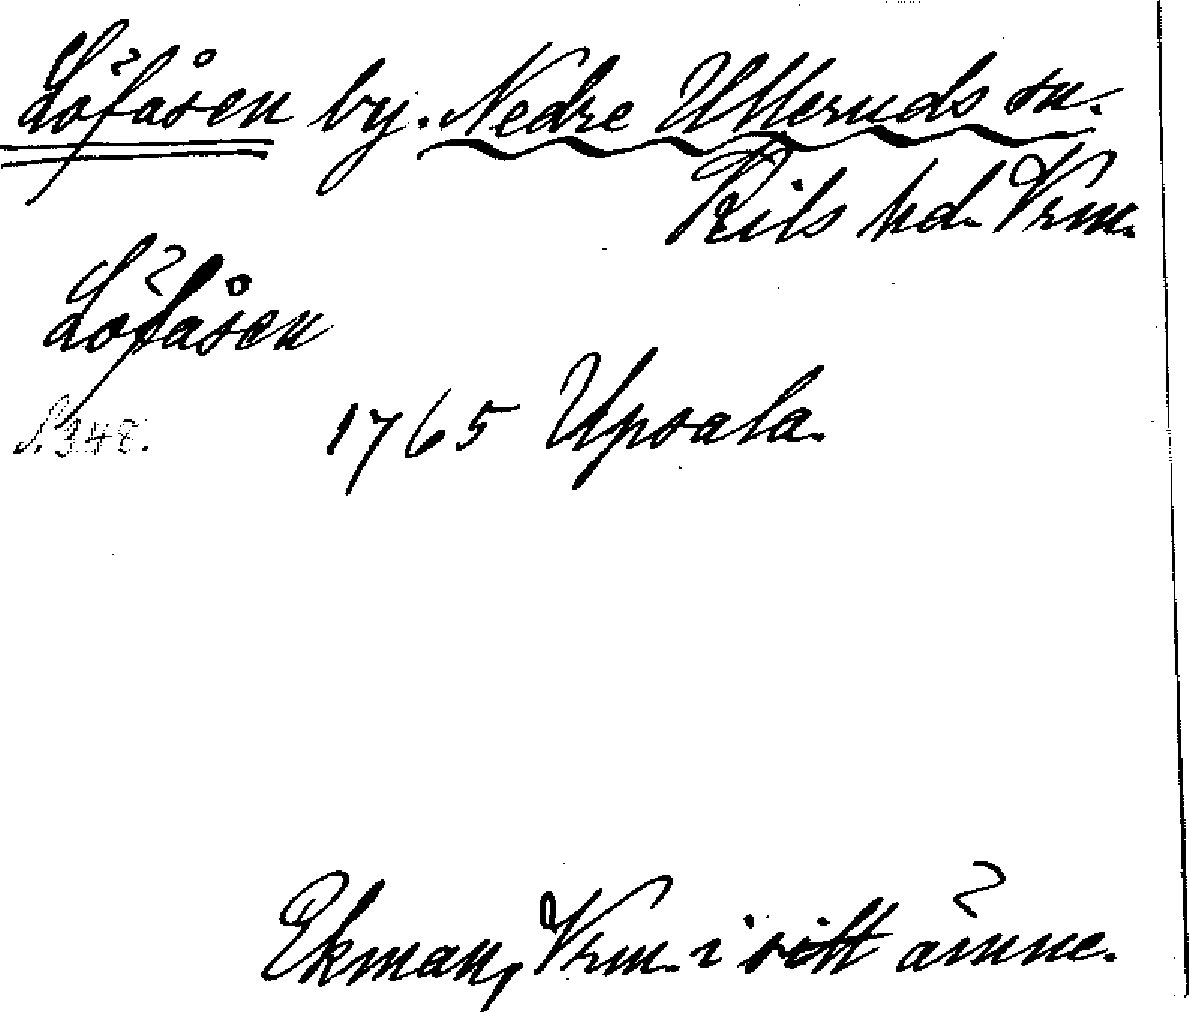 Löfåsen by. Nedre Ulleruds sn.
Kils hd. Vrm.
Löfåsen
S. 348.
1765 Upsala.
Ekman, Vrm. i sitt ämne.